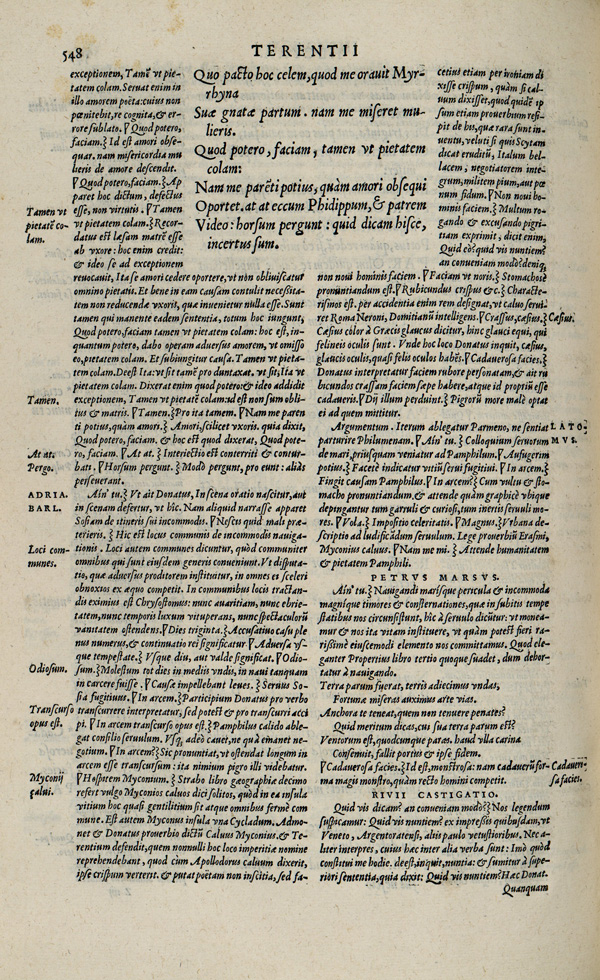 548
TERENTII
Quo pacto hoc celem, quod me orauit Myr-
rhyna
Suæ gnatæ partum. nam me miseret mu-
lieris.
Quod potero, faciam, tamen vt pietatem
colam:
Nam me parēti potius, quàm amori obsequi
Oportet. at at eccum Phidippum, & patrem
Video: horsum pergunt: quid dicam hisce,
incertus sum.
exceptionem, Tamē vt pie-
tatem colam. Seruat enim in
illo amorem poëta: cuius non
pœnitebit, re cognita, & er-
rore sublato. ¶ Quod potero,
faciam. ⁆ Id est amori obse-
quar. nam misericordia mu
lieris de amore descendit.
¶ Quod potero, faciam. ⁆ Ap
paret hoc dictum, defectus
esse, non virtutis. ¶ Tamen
vt pietatem colam. ⁆ Recor-
datus est læsam matrē esse
ab vxore: hoc enim credit:
& ideo se ad exceptionem
reuocauit, Ita se amori cedere oportere, vt non obliuiscatur
omnino pietatis. Et bene in eam causam contulit necessita-
tem non reducendæ vxoris, quæ inuenietur nulla esse. Sunt
tamen qui manente eadem sententia, totum hoc iungunt,
Quod potero, faciam tamen vt pietatem colam: hoc est, in-
quantum potero, dabo operam aduersus amorem, vt omisso
eo, pietatem colam. Et subiungitur causa. Tamen vt pieta-
tem colam. Deest Ita: vt sit tamē pro duntaxat, vt sit, Ita vt
pietatem colam. Dixerat enim quod potero: & ideo addidit
exceptionem, Tamen vt pietatē colam: id est non sum obli-
tus & matris. ¶ Tamen. ⁆ Pro ita tamem. ¶ Nam me paren
ti potius, quàm amori. ⁆ Amori, scilicet vxoris. quia dixit,
Quod potero, faciam. & hoc est quod dixerat, Quod pote-
ro, faciam. ¶ At at. ⁆ Interiectio est conterriti & contur-
bati. ¶ Horsum pergunt. ⁆ Modò pergunt, pro eunt: aliàs
perseuerant.
Ain' tu. ⁆ Vt ait Donatus, In scena oratio nascitur, aut
in scenam defertur, vt hîc. Nam aliquid narrasse apparet
Sosiam de itineris sui incommodis. ¶ Nescis quid mali præ-
terieris. ⁆ Hic est locus communis de incommodis nauiga-
tionis. Loci autem communes dicuntur, quòd communiter
omnibus qui sunt eiusdem generis conueniunt. Vt disputa-
tio, quæ aduersus proditorem instituitur, in omnes ei sceleri
obnoxios ex æquo competit. In communibus locis tractan-
dis eximius est Chrysostomus: nunc auaritiam, nunc ebrie-
tatem, nunc temporis luxum vituperans, nunc spectaculorū
vanitatem ostendens. ¶ Dies triginta. ⁆ Accusatiuo casu ple
nus numerus, & continuatio rei significatur. ¶ Aduersa vs-
que tempestate. ⁆ Vsque diu, aut valde significat. ¶ Odio-
sum. ⁆ Molestum tot dies in mediis vndis, in naui tanquam
in carcere fuisse. ¶ Causæ impellebant leues. ⁆ Seruus So-
sia fugitiuus. ¶ In arcem. ⁆ Participium Donatus pro verbo
transcurrere interpretatur, sed potest & pro transcurri acci
pi. ¶ In arcem transcurso opus est. ⁆ Pamphilus calidè able-
gat consilio seruulum. Vsq; adeò cauet, ne quà emanet ne-
gotium. ¶ In arcem. ⁆ Sic pronuntiat, vt ostendat longum in
arcem esse transcursum: ita nimium pigro illi videbatur.
¶ Hospitem Myconium. ⁆ Strabo libro geographiæ decimo
refert vulgo Myconios caluos dici solitos, quòd in ea insula
vitium hoc quasi gentilitium sit atque omnibus fermè com
mune. Est autem Myconus insula vna Cycladum. Admo-
net & Donatus prouerbio dictū Caluus Myconius. & Te-
rentium defendit, quem nonnulli hoc loco imperitiæ nomine
reprehendebant, quod cùm Apollodorus caluum dixerit,
ipse crispum verterit. & putat poëtam non inscitia, sed fa-
Tamen vt
pietatē co-
lam.
Tamen.
At at.
Pergo.
ADRIA.
BARL.
Loci com-
munes.
Odiosum.
Transcurso
opus est.
Myconij
calui.
cetius etiam per ironiam di
xisse crispum, quàm si cal-
uum dixisset, quod quidē ip
sum etiam prouerbium resi-
pit de his, quæ rara sunt in-
uentu, veluti si quis Scytam
dicat eruditū, Italum bel-
lacem, negotiatorem inte-
grum, militem pium, aut pœ
num fidum. ¶ Non noui ho-
minis faciem. ⁆ Multum ro-
gando & excusando pigri-
tiam exprimit, dicit enim,
Quid eò? quid vis nuntiem?
an conueniam modò? deniq;
non noui hominis faciem. ¶ Faciam vt noris. ⁆ Stomachosè
pronuntiandum est. ¶ Rubicundus crispus &c. ⁆ Characte-
rismos est. per accidentia enim rem designat, vt caluo serui-
ret Roma Neroni, Domitianū intelligens. ¶ Crassus, cæsius. ⁆
Cæsius color à Græcis glaucus dicitur, hinc glauci equi, qui
felineis oculis sunt. Vnde hoc loco Donatus inquit, cæsius,
glaucis oculis, quasi felis oculos habēs. ¶ Cadauerosa facies. ⁆
Donatus interpretatur faciem rubore personatam, & ait ru
bicundos crassam faciem sæpe habere, atque id propriū esse
cadaueris. ¶ Dij illum perduint. ⁆ Pigrorū more malè optat
ei ad quem mittitur.
Argumentum. Iterum ablegatur Parmeno, ne sentiat
parturire Philumenam. ¶ Ain' tu. ⁆ Colloquium seruorum
de mari, priusquam veniatur ad Pamphilum. ¶ Aufugerim
potius. ⁆ Facetè indicatur vitiū serui fugitiui. ¶ In arcem. ⁆
Fingit causam Pamphilus. ¶ In arcem? ⁆ Cum vultu & sto-
macho pronuntiandum. & attende quàm graphicè vbique
depingantur tum garruli & curiosi, tum inertis seruuli mo-
res. ¶ Vola. ⁆ Impositio celeritatis. ¶ Magnus. ⁆ Vrbana de-
scriptio ad ludificādum seruulum. Lege prouerbiū Erasmi,
Myconius caluus. ¶ Nam me mi. ⁆ Attende humanitatem
& pietatem Pamphili.
PETRVS MARSVS.
Ain' tu. ⁆ Nauigandi marísque pericula & incommoda
magníque timores & consternationes, quæ in subitis tempe
statibus nos circunsistunt, hîc à seruulo dicitur: vt monea-
mur & nos ita vitam instituere, vt quàm potest fieri ra-
rissimè eiuscemodi elemento nos committamus. Quod ele-
ganter Propertius libro tertio quoque suadet, dum dehor-
tatur à nauigando.
Terra parum fuerat, terris adiecimus vndas,
Fortunæ miseras auximus arte vias.
Anchora te teneat, quem non tenuere penates?
Quid meritum dicas, cui sua terra parum est?
Ventorum est, quodcunque paras. haud vlla carina
Consenuit, fallit portus & ipse fidem.
¶ Cadauerosa facies. ⁆ Id est, monstrosa: nam cadauerū for-
ma magis monstro, quàm recto homini competit.
RIVII CASTIGATIO.
Quid vis dicam? an conueniam modò? ⁆ Nos legendum
suspicamur: Quid vis nuntiem? ex impressis quibusdam, vt
Veneto, Argentoratensi, aliis paulo vetustioribus. Nec a-
liter interpres, cuius hæc inter alia verba sunt: Imò quòd
constitui me hodie. deest, inquit, nuntia: & sumitur à supe-
riori sententia, quia dixit: Quid vis nuntiem? Hæc Donat.
Quanquam
Cæsius.
LATO-
MVS.
Cadaue-
sa facies.